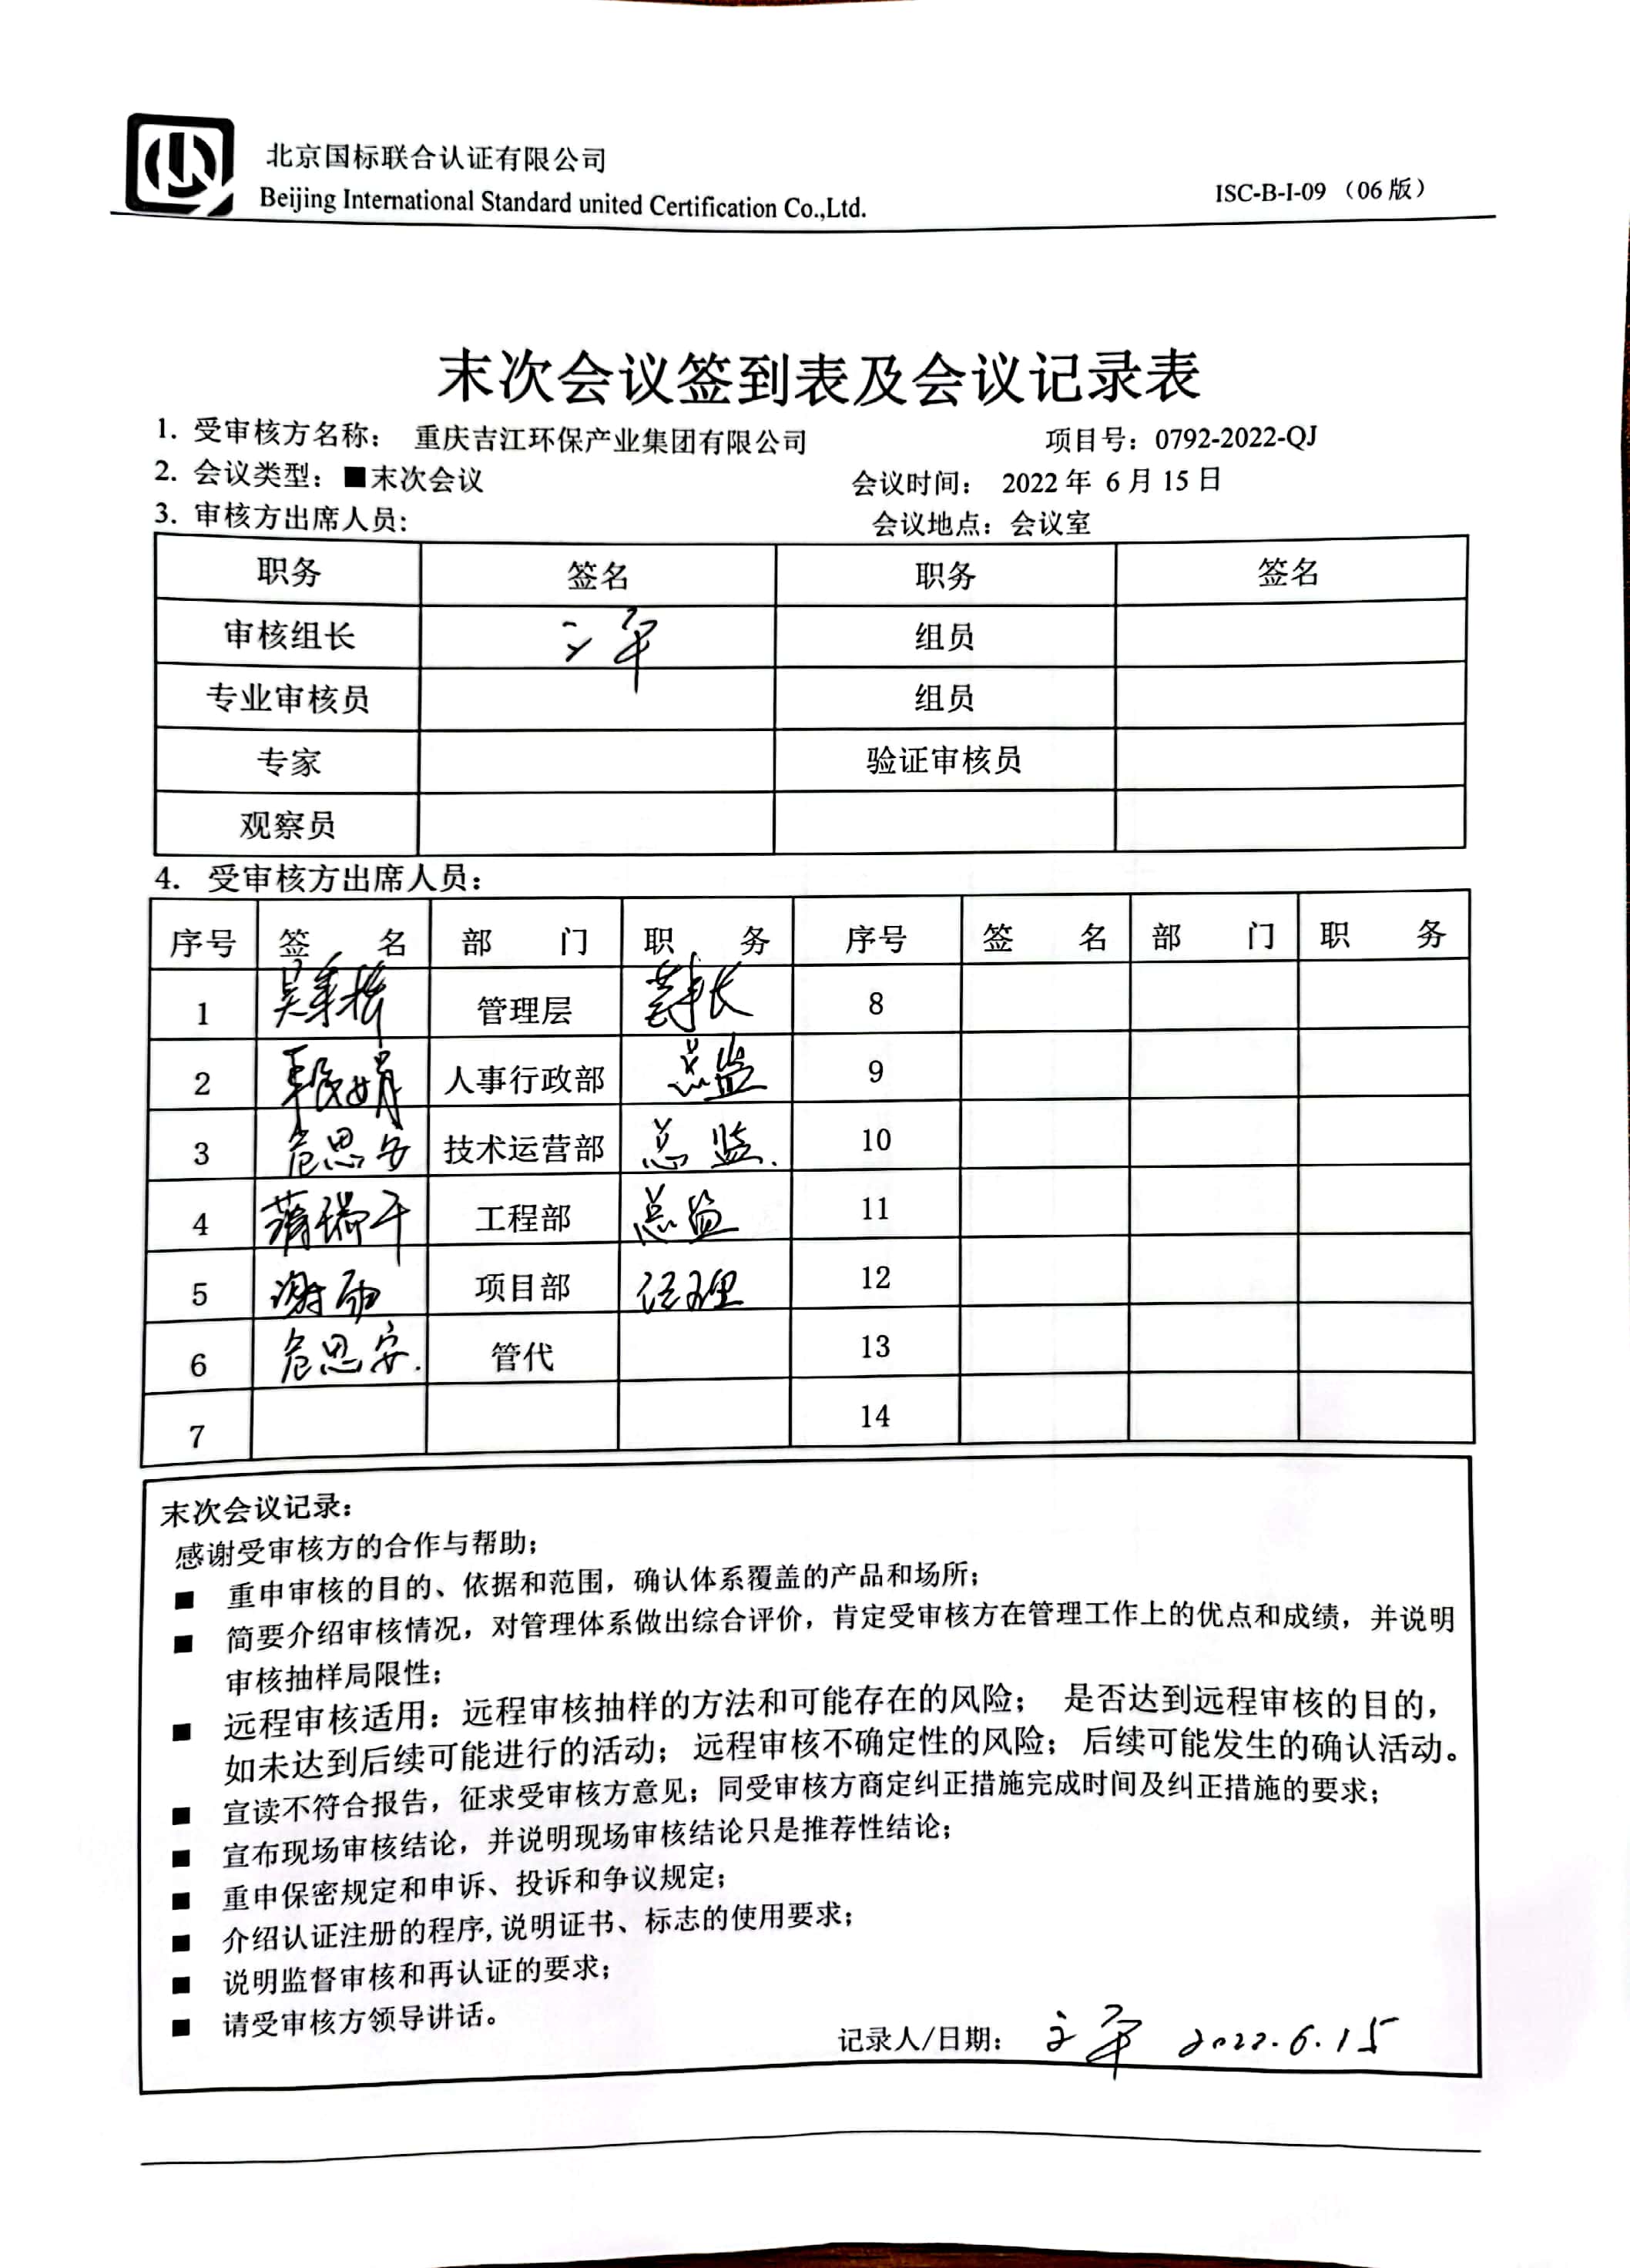 北京国标联合认证有限公司
Beijing International Standard united Certification Co.,Ltd.
ISC-B-I-09（06版）
末次会议签到表及会议记录表
1. 受审核方名称： 重庆吉江环保产业集团有限公司 项目号：0792-2022-QJ
2. 会议类型：■末次会议 会议时间： 2022年 6月 15日
3. 审核方出席人员: 会议地点：会议室
职务 签名 职务 签名
审核组长 文军 组员
专业审核员 组员
专家 验证审核员
观察员
4. 受审核方出席人员：
序号 签 名 部 门 职 务 序号 签 名 部 门 职 务
1 管理层 董事长 8
2 人事行政部 总监 9
3 危思安 技术运营部 总监. 10
4 蒲瑞平 工程部 总监 11
5 项目部 经理 12
6 危思安. 管代 13
7 14
末次会议记录：
感谢受审核方的合作与帮助；
■ 重申审核的目的、依据和范围，确认体系覆盖的产品和场所；
■ 简要介绍审核情况，对管理体系做出综合评价，肯定受审核方在管理工作上的优点和成绩，并说明
审核抽样局限性；
■ 远程审核适用：远程审核抽样的方法和可能存在的风险； 是否达到远程审核的目的，
如未达到后续可能进行的活动；远程审核不确定性的风险；后续可能发生的确认活动。
■ 宣读不符合报告，征求受审核方意见；同受审核方商定纠正措施完成时间及纠正措施的要求；
■ 宣布现场审核结论，并说明现场审核结论只是推荐性结论；
■ 重申保密规定和申诉、投诉和争议规定；
■ 介绍认证注册的程序,说明证书、标志的使用要求；
■ 说明监督审核和再认证的要求；
■ 请受审核方领导讲话。
记录人/日期： 文军 2022.6.15